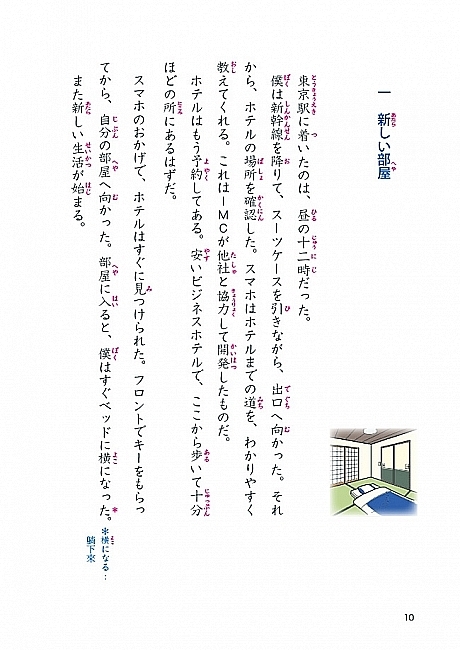 一　新しい部屋
東京駅に着いたのは、昼の十二時だった。
僕は新幹線を降りて、スーツケースを引きながら、出口へ向かった。それ
から、ホテルの場所を確認した。スマホはホテルまでの道を、わかりやすく
教えてくれる。これはＩＭＣが他社と協力して開発したものだ。
ホテルはもう予約してある。安いビジネスホテルで、ここから歩いて十分
ほどの所にあるはずだ。
スマホのおかげで、ホテルはすぐに見つけられた。フロントでキーをもらっ
てから、自分の部屋へ向かった。部屋に入ると、僕はすぐベッドに横になった。*
また新しい生活が始まる。
*横になる：
躺下來
10